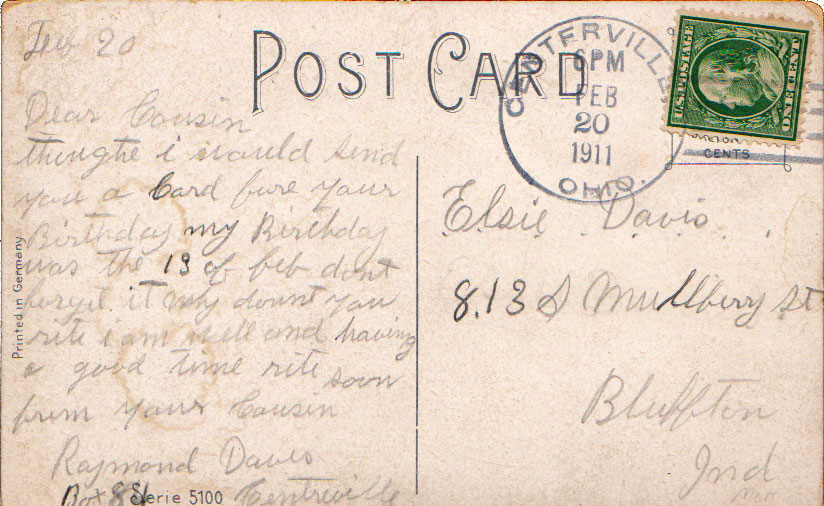 Feb 20
POST CARD
CENTERVILLE
6PM
FEB
20
1911
OHIO.
U.S. POSTAGE
ONE CENT
CENTS
Dear Cousin
thoughe i would send
you a Card fure your
Birthday my Birthday
was the 13 of feb dont
forget it why dount you
rite i am well and having
a good time rite soon
from your Cousin
Raymond Davis
Box 81 Centreville
Elsie Davis
813 S Mullberry St
Bluffton
Ind
Printed in Germany
Serie 5100